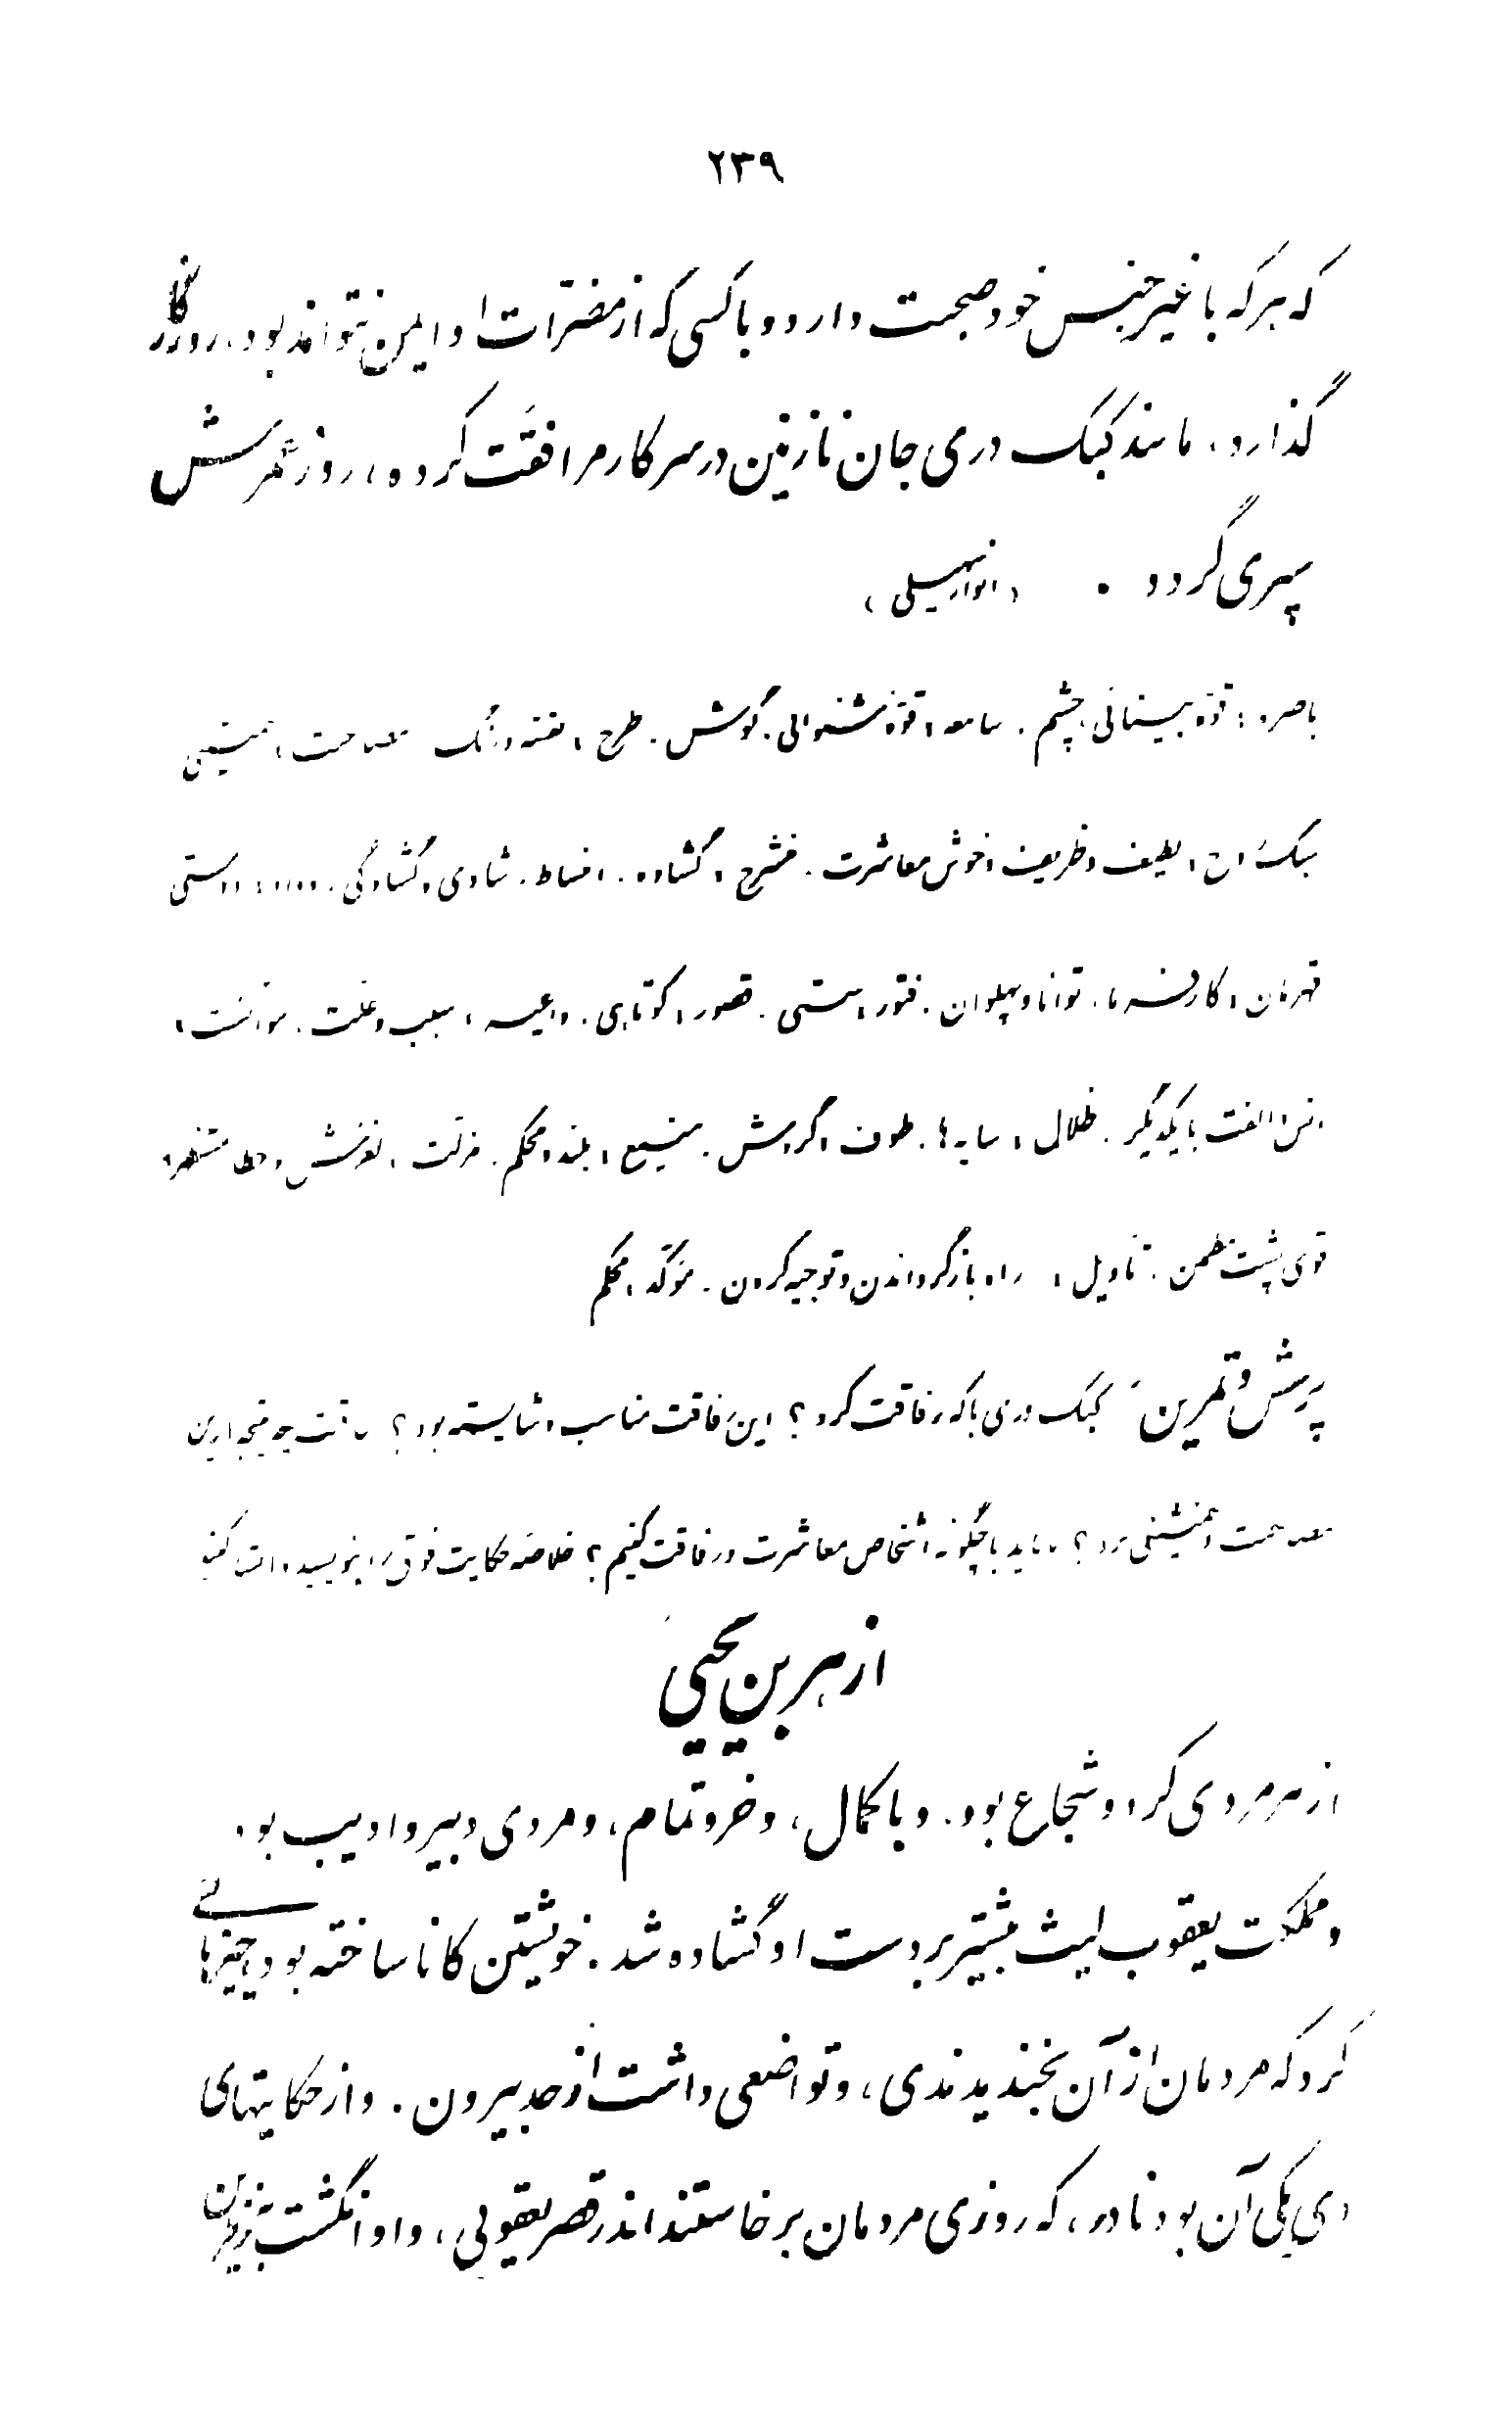 ۲۳۹
که هرکه با غیر جنس خود صحبت دارد و با کسی که از مضرّات او ایمن نتواند بود، روزگار
گذارد، مانند کبک دری جان نازنین در سر کار مرافقَت کرده، روز عمرش
سپری گردد . (انوار سهیلی)
باصره، قوّه بینائی، چشم . سامعه، قوّه شنوائی، گوش . طرح، نقشه و رنگ مصاحبت، همنشینی
سبک روح، لطیف و ظریف و خوش معاشرت . منشرح، گشاده . انبساط، شادی و گشادگی . راستی
قهرمان، کارفرما، توانا و پهلوان . فتور، سستی . قصور، کوتاهی . داعیه، سبب و علّت . موانست،
انس و الفت با یکدیگر . ظلال، سایه‌ها . طوف، گردش . منیع، بلند و محکم . مزلّت، لغزش و خطا مستظهر،
قوی پشت و مطمئن . تأویل، راه بازگرداندن و توجیه کردن . مؤکّد، محکم
پرسش و تمرین کبک دری با که رفاقت کرد؟ این رفاقت مناسب و شایسته بود؟ عاقبت چه نتیجه از این
مصاحبت و همنشینی برد؟ ما باید با چگونه اشخاص معاشرت و رفاقت کنیم؟ خلاصه حکایت فوق را بنویسید
ازهر بن یحیی
ازهر مردی گرد و شجاع بود. و با کمال، و خرد تمام، و مردی دبیر و ادیب بود.
و مملکت یعقوب لیث بیشتر بر دست او گشاده شد. خویشتن کانا ساخته بود، چیزهائی
کرد که مردمان از آن بخندیدندی، و تواضعی داشت از حد بیرون. و از حکایتهای
وی یکی آن بود نادر، که روزی مردمان برخاستند اندر قصر یعقوبی، و او انگشت به زفرین